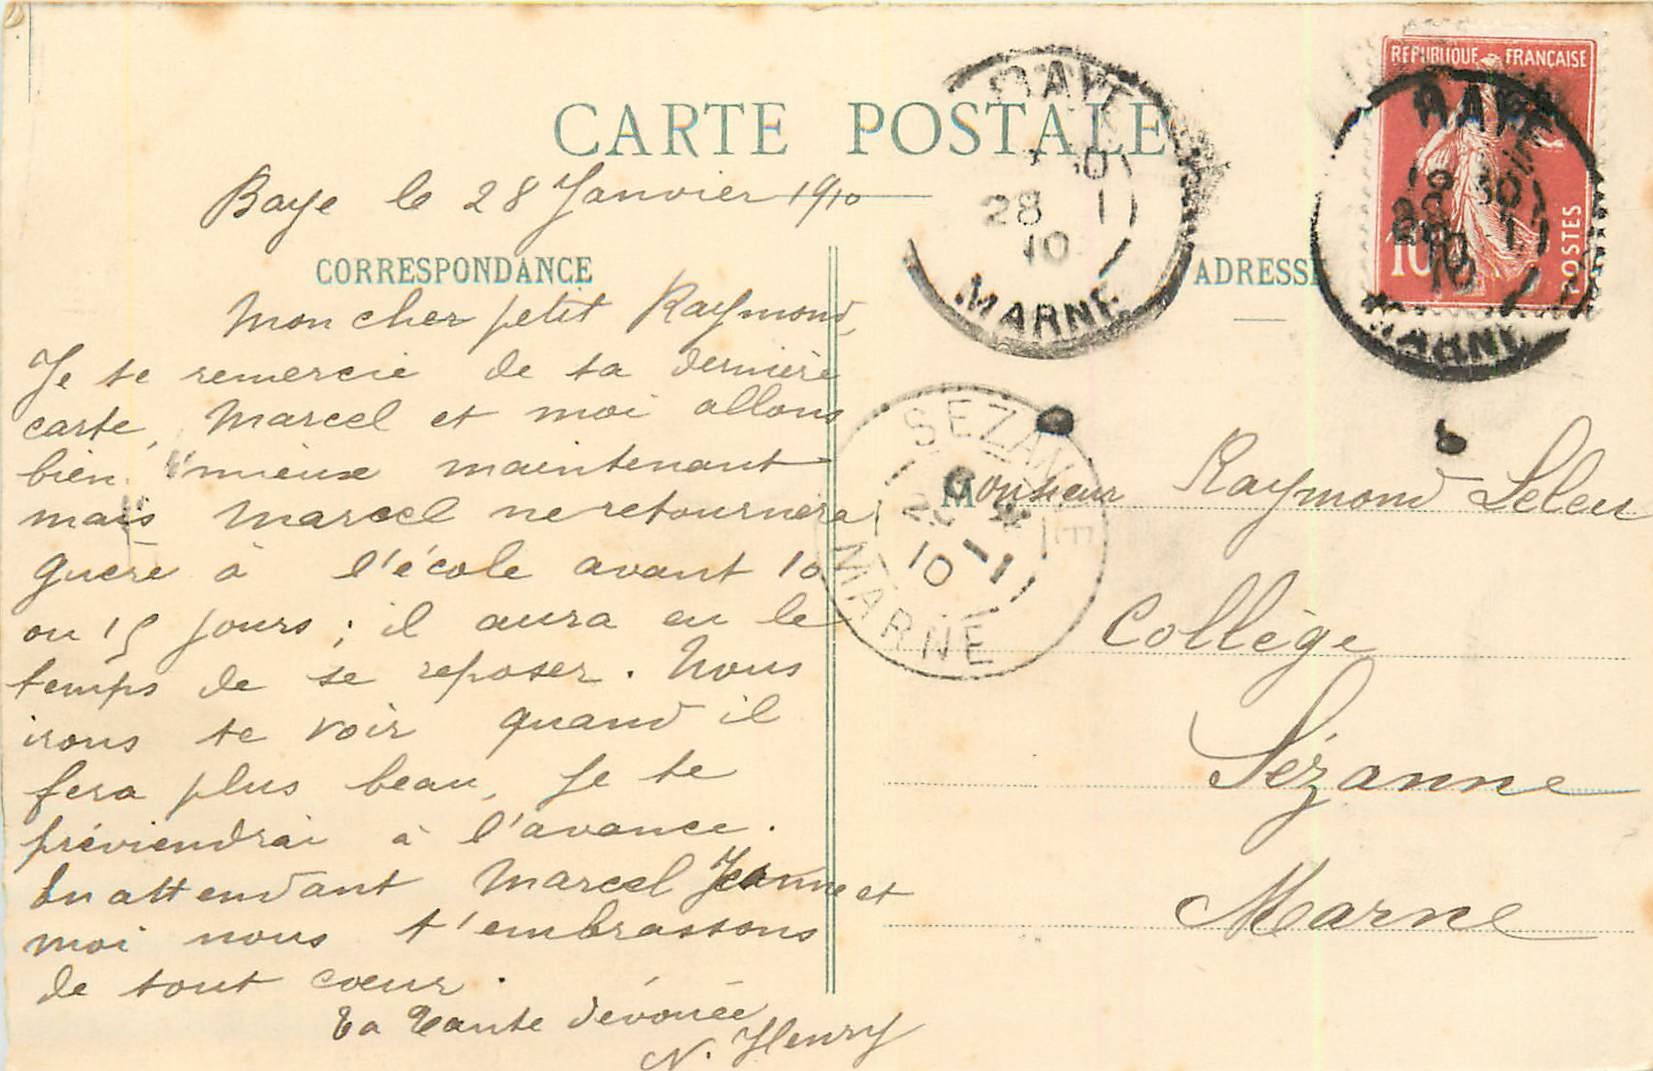 CARTE POSTALE
Baye le 28 Janvier 1910
CORRESPONDANCE
Mon cher petit Raymond,
Je te remercie de ta dernière
carte, Marcel et moi allons
bien mieux maintenant
mais Marcel ne retournera
guère à l'école avant 10
ou 15 jours ; il aura eu le
temps de se reposer. Nous
irons te voir quand il
fera plus beau, Je te
préviendrai à l'avance.
En attendant Marcel Jeanne et
moi nous t'embrassons
de tout cœur.
Ta Tante dévouée
N. Henry
BAYE
28 1
10
MARNE
REPUBLIQUE FRANÇAISE
POSTES
10
BAYE
MARNE
ADRESSE
SEZANNE
10
MARNE
Monsieur Raymond Leleu
Collège
Sézanne
Marne